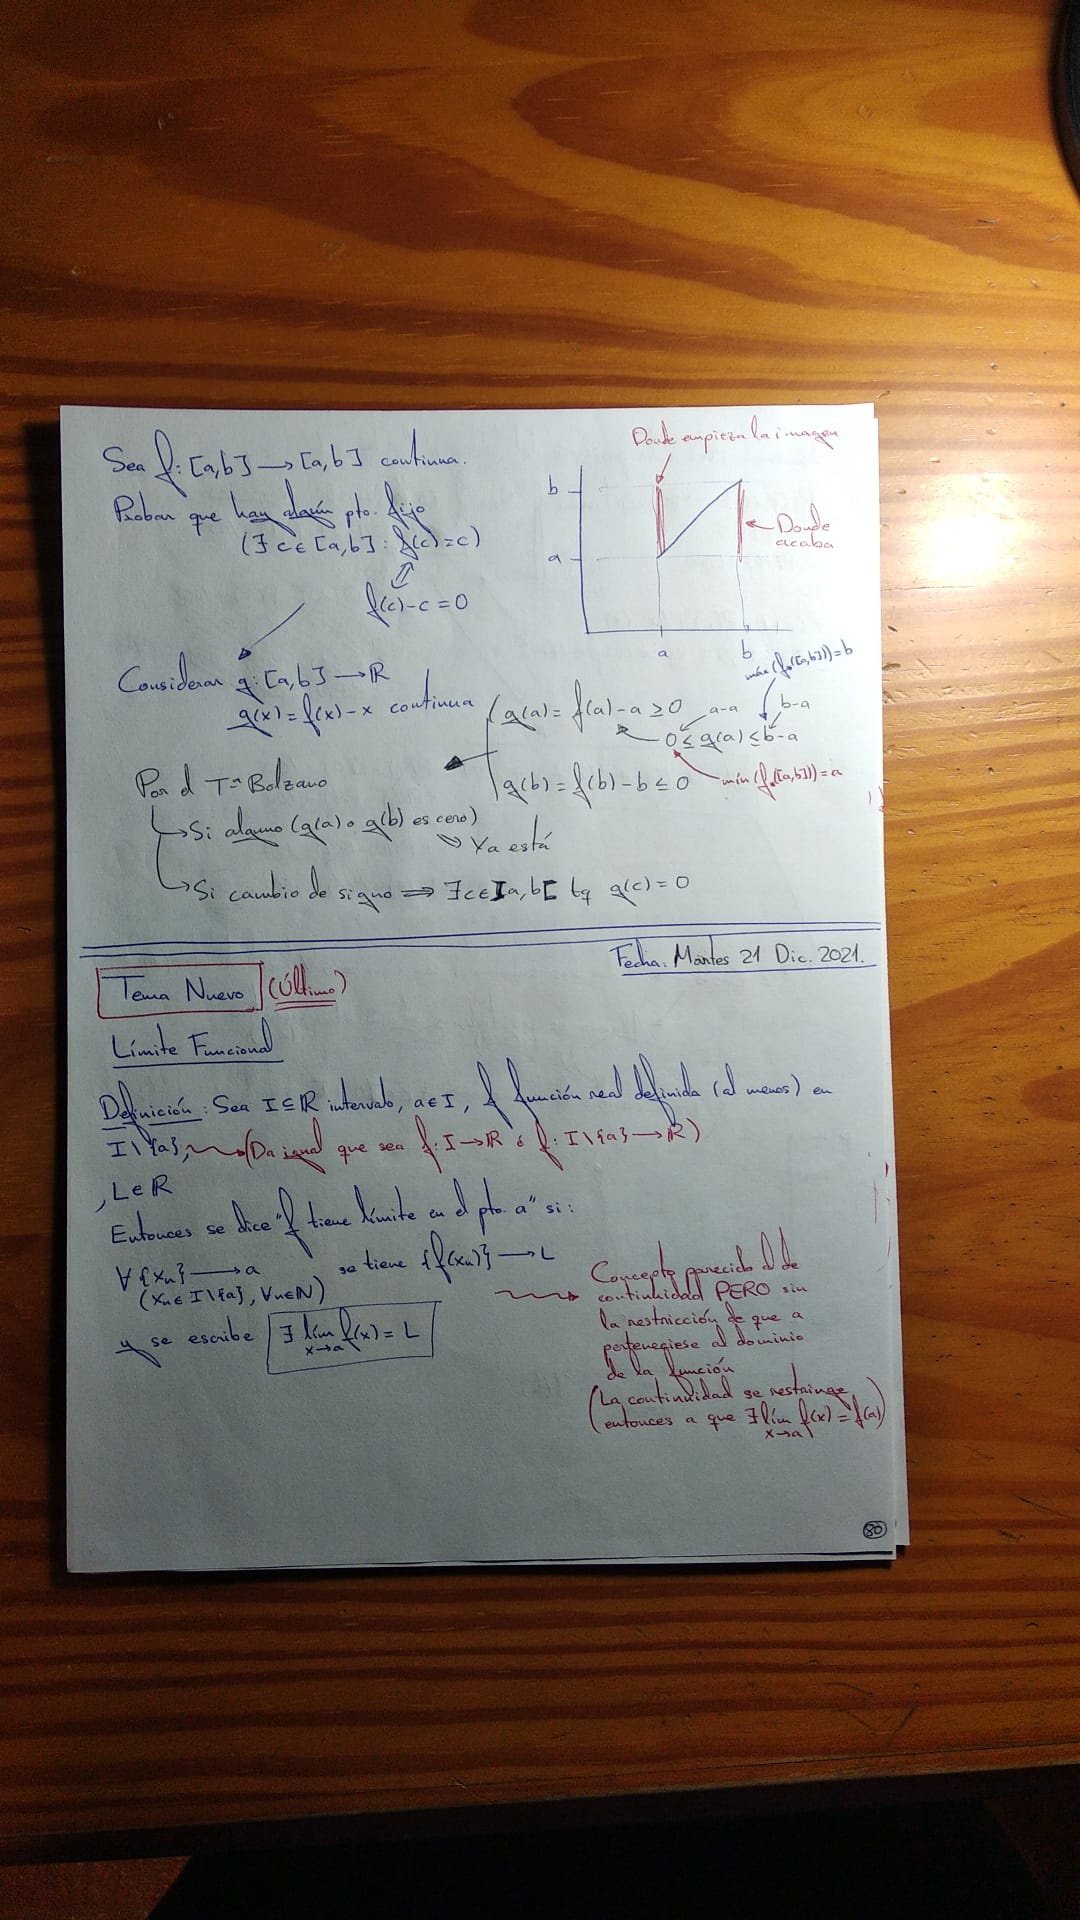 Sea f: [a,b] → [a,b] continua.
Probar que hay algún pto. fijo
(∃ c ∈ [a,b] : f(c) = c)
⇕
f(c) - c = 0
Donde empieza la imagen
b
a
Donde
acaba
a
b
Considerar g: [a,b] → ℝ
g(x) = f(x) - x continua
g(a) = f(a) - a ≥ 0
g(b) = f(b) - b ≤ 0
máx (f([a,b])) = b
a-a
b-a
0 ≤ g(a) ≤ b-a
mín (f([a,b])) = a
Por el Tª Bolzano
Si alguno (g(a) o g(b) es cero)
⇒ Ya está
Si cambio de signo ⇒ ∃ c ∈ ]a,b[ tq g(c) = 0
Fecha: Martes 21 Dic. 2021.
Tema Nuevo (Último)
Límite Funcional
Definición: Sea I ⊆ ℝ intervalo, a ∈ I, f función real definida (al menos) en
I\{a}, (Da igual que sea f: I → ℝ ó f: I\{a} → ℝ)
, L ∈ ℝ
Entonces se dice "f tiene límite en el pto. a" si:
∀ {xₙ} → a se tiene {f(xₙ)} → L
(xₙ ∈ I\{a}, ∀n ∈ ℕ)
y se escribe ∃ lím f(x) = L
x→a
Concepto parecido al de
continuidad PERO sin
la restricción de que a
perteneciese al dominio
de la función
(La continuidad se restringe
entonces a que ∃ lím f(x) = f(a))
x→a
80